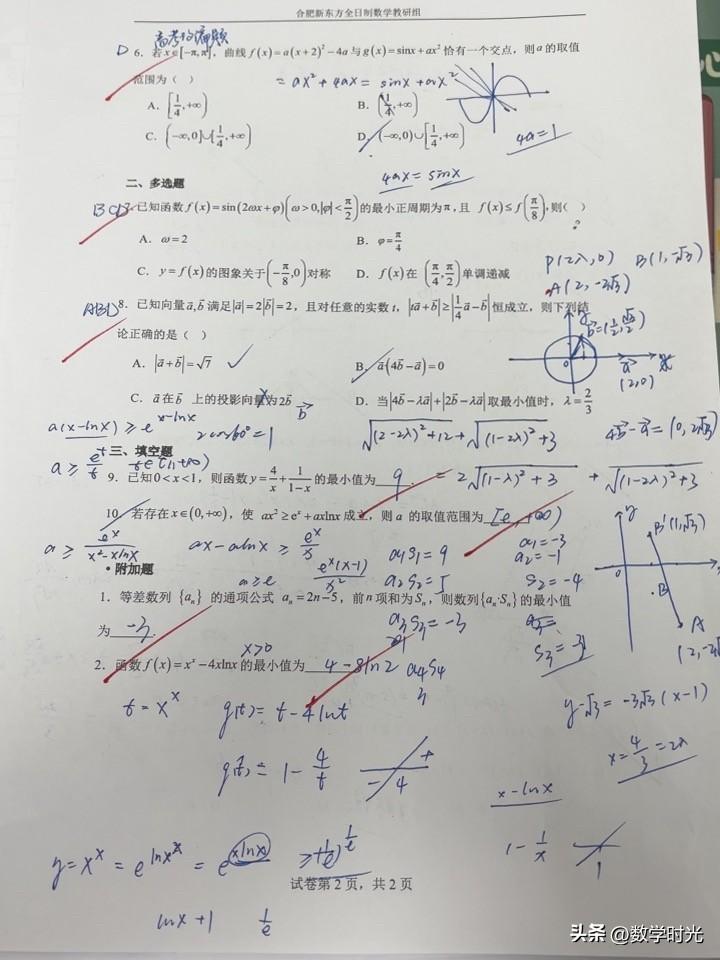 合肥新东方全日制数学教研组
D 6. 若x∈[-π,π], 曲线 f(x)=a(x+2)²-4a与g(x)=sinx+ax² 恰有一个交点, 则a的取值
范围为( )
= ax²+4ax = sinx+ax²
A. [1/4,+∞) B. (1/4,+∞)
C. (-∞,0]∪[1/4,+∞) D. (-∞,0)∪[1/4,+∞)
4a=1
4ax = sinx
二、多选题
BCD 7. 已知函数f(x)=sin(2ωx+φ)(ω>0,|φ|<π/2)的最小正周期为π, 且 f(x)≤f(π/8), 则( )
A. ω=2 B. φ=π/4
C. y=f(x)的图象关于(-π/8,0)对称 D. f(x)在(π/4,π/2)单调递减
P(2λ,0) B(1,-√3)
A(2,-2√3)
ABD 8. 已知向量a,b满足|a|=2|b|=2, 且对任意的实数t, |ta+b|≥|1/4a-b|恒成立, 则下列结
论正确的是( )
b=(1/2,√3/2)
A. |a+b|=√7 ✓ B. a(4b-a)=0
a
(2,0)
C. a在b 上的投影向量为2b D. 当|4b-λa|+|2b-λa|取最小值时, λ=2/3
b
a(x-lnx) ≥ e^(x-lnx)
2cos60°=1
√((2-2λ)²+12)+√((1-2λ)²+3)
4b-a=(0,2√3)
三、填空题
a ≥ e^t/t t∈(1,+∞)
9. 已知0<x<1, 则函数y=4/x+1/(1-x)的最小值为 9 .
= 2√((1-λ)²+3) + √((1-2λ)²+3)
10. 若存在x∈(0,+∞), 使 ax²≥e^x+axlnx成立, 则a 的取值范围为 [e,+∞)
a ≥ e^x/(x²-xlnx) ax-alnx ≥ e^x/x a₁S₁=9 a₁=-3
a₂=-1
B'(1,√3)
•附加题
a≥e e^x(x-1)/x² a₂S₂=5 S₂=-4
1. 等差数列 {aₙ} 的通项公式 aₙ=2n-5, 前n项和为Sₙ, 则数列{aₙ·Sₙ}的最小值
为 -3 .
a₃S₃=-3
S₃=-3
A
x>0
2. 函数f(x)=x^x-4xlnx的最小值为 4-8ln2
a₄S₄
t=x^x g(t)=t-4lnt
y-√3=-3√3(x-1)
g'(t)=1-4/t
- 4 +
x=4/3=2λ
x-lnx
1-1/x
1
y=x^x=e^(lnx^x)=e^(xlnx)
试卷第2页, 共2页
lnx+1 1/e
头条 @数学时光